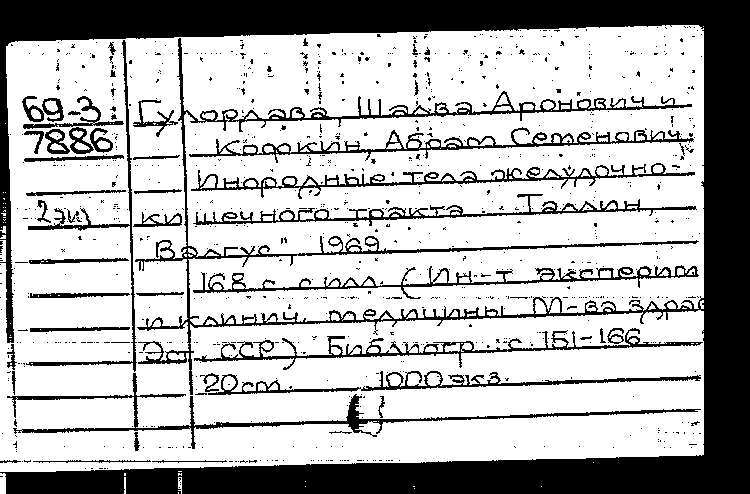 69-3 Гулордава, Шалва Аронович и
7886 Кофкин, Абрам Семенович.
Инородные тела желудочно-
2 экз кишечного тракта. Таллин,
"Валгус", 1969.
168 с. с илл. (Ин-т эксперим
и клинич. медицины М-ва здрав
Эст. ССР). Библиогр.: с. 151-166.
20 см. 1000 экз.